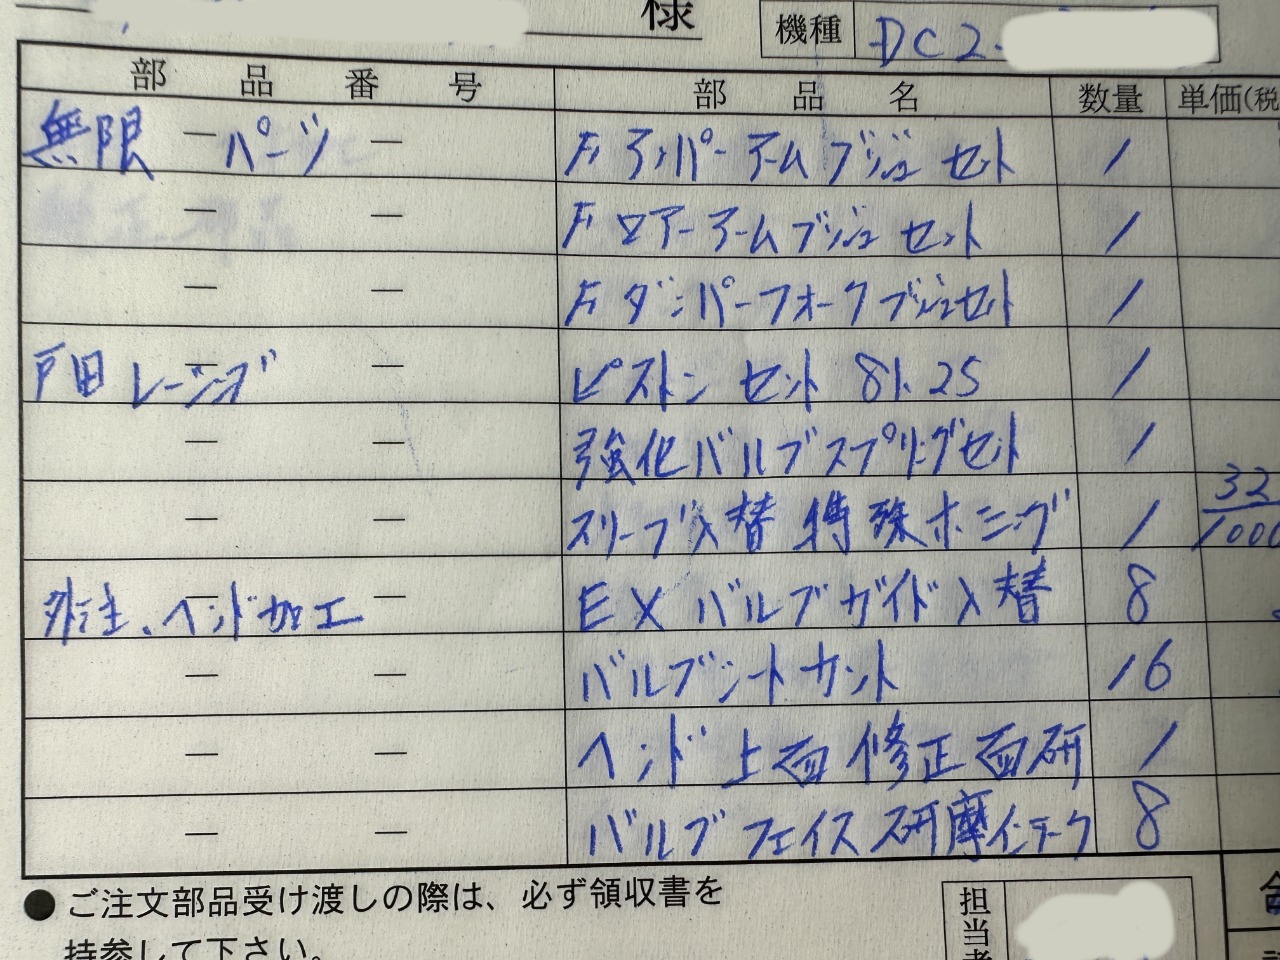 様
機種 DC2-
部品番号 部品名 数量 単価(税
無限 パーツ F アッパーアームブジュセット 1
F ロアーアームブジュセット 1
F ダンパーフォークブジュセット 1
戸田レーシング ピストンセット 81.25 1
強化バルブスプリングセット 1
スリーブ入替 特殊ホーニング 1 32/1000
外注、ヘッド加工 EXバルブガイド入替 8
バルブシートカット 16
ヘッド上面修正面研 1
バルブフェイス研摩インテーク 8
●ご注文部品受け渡しの際は、必ず領収書を
持参して下さい。
担当者